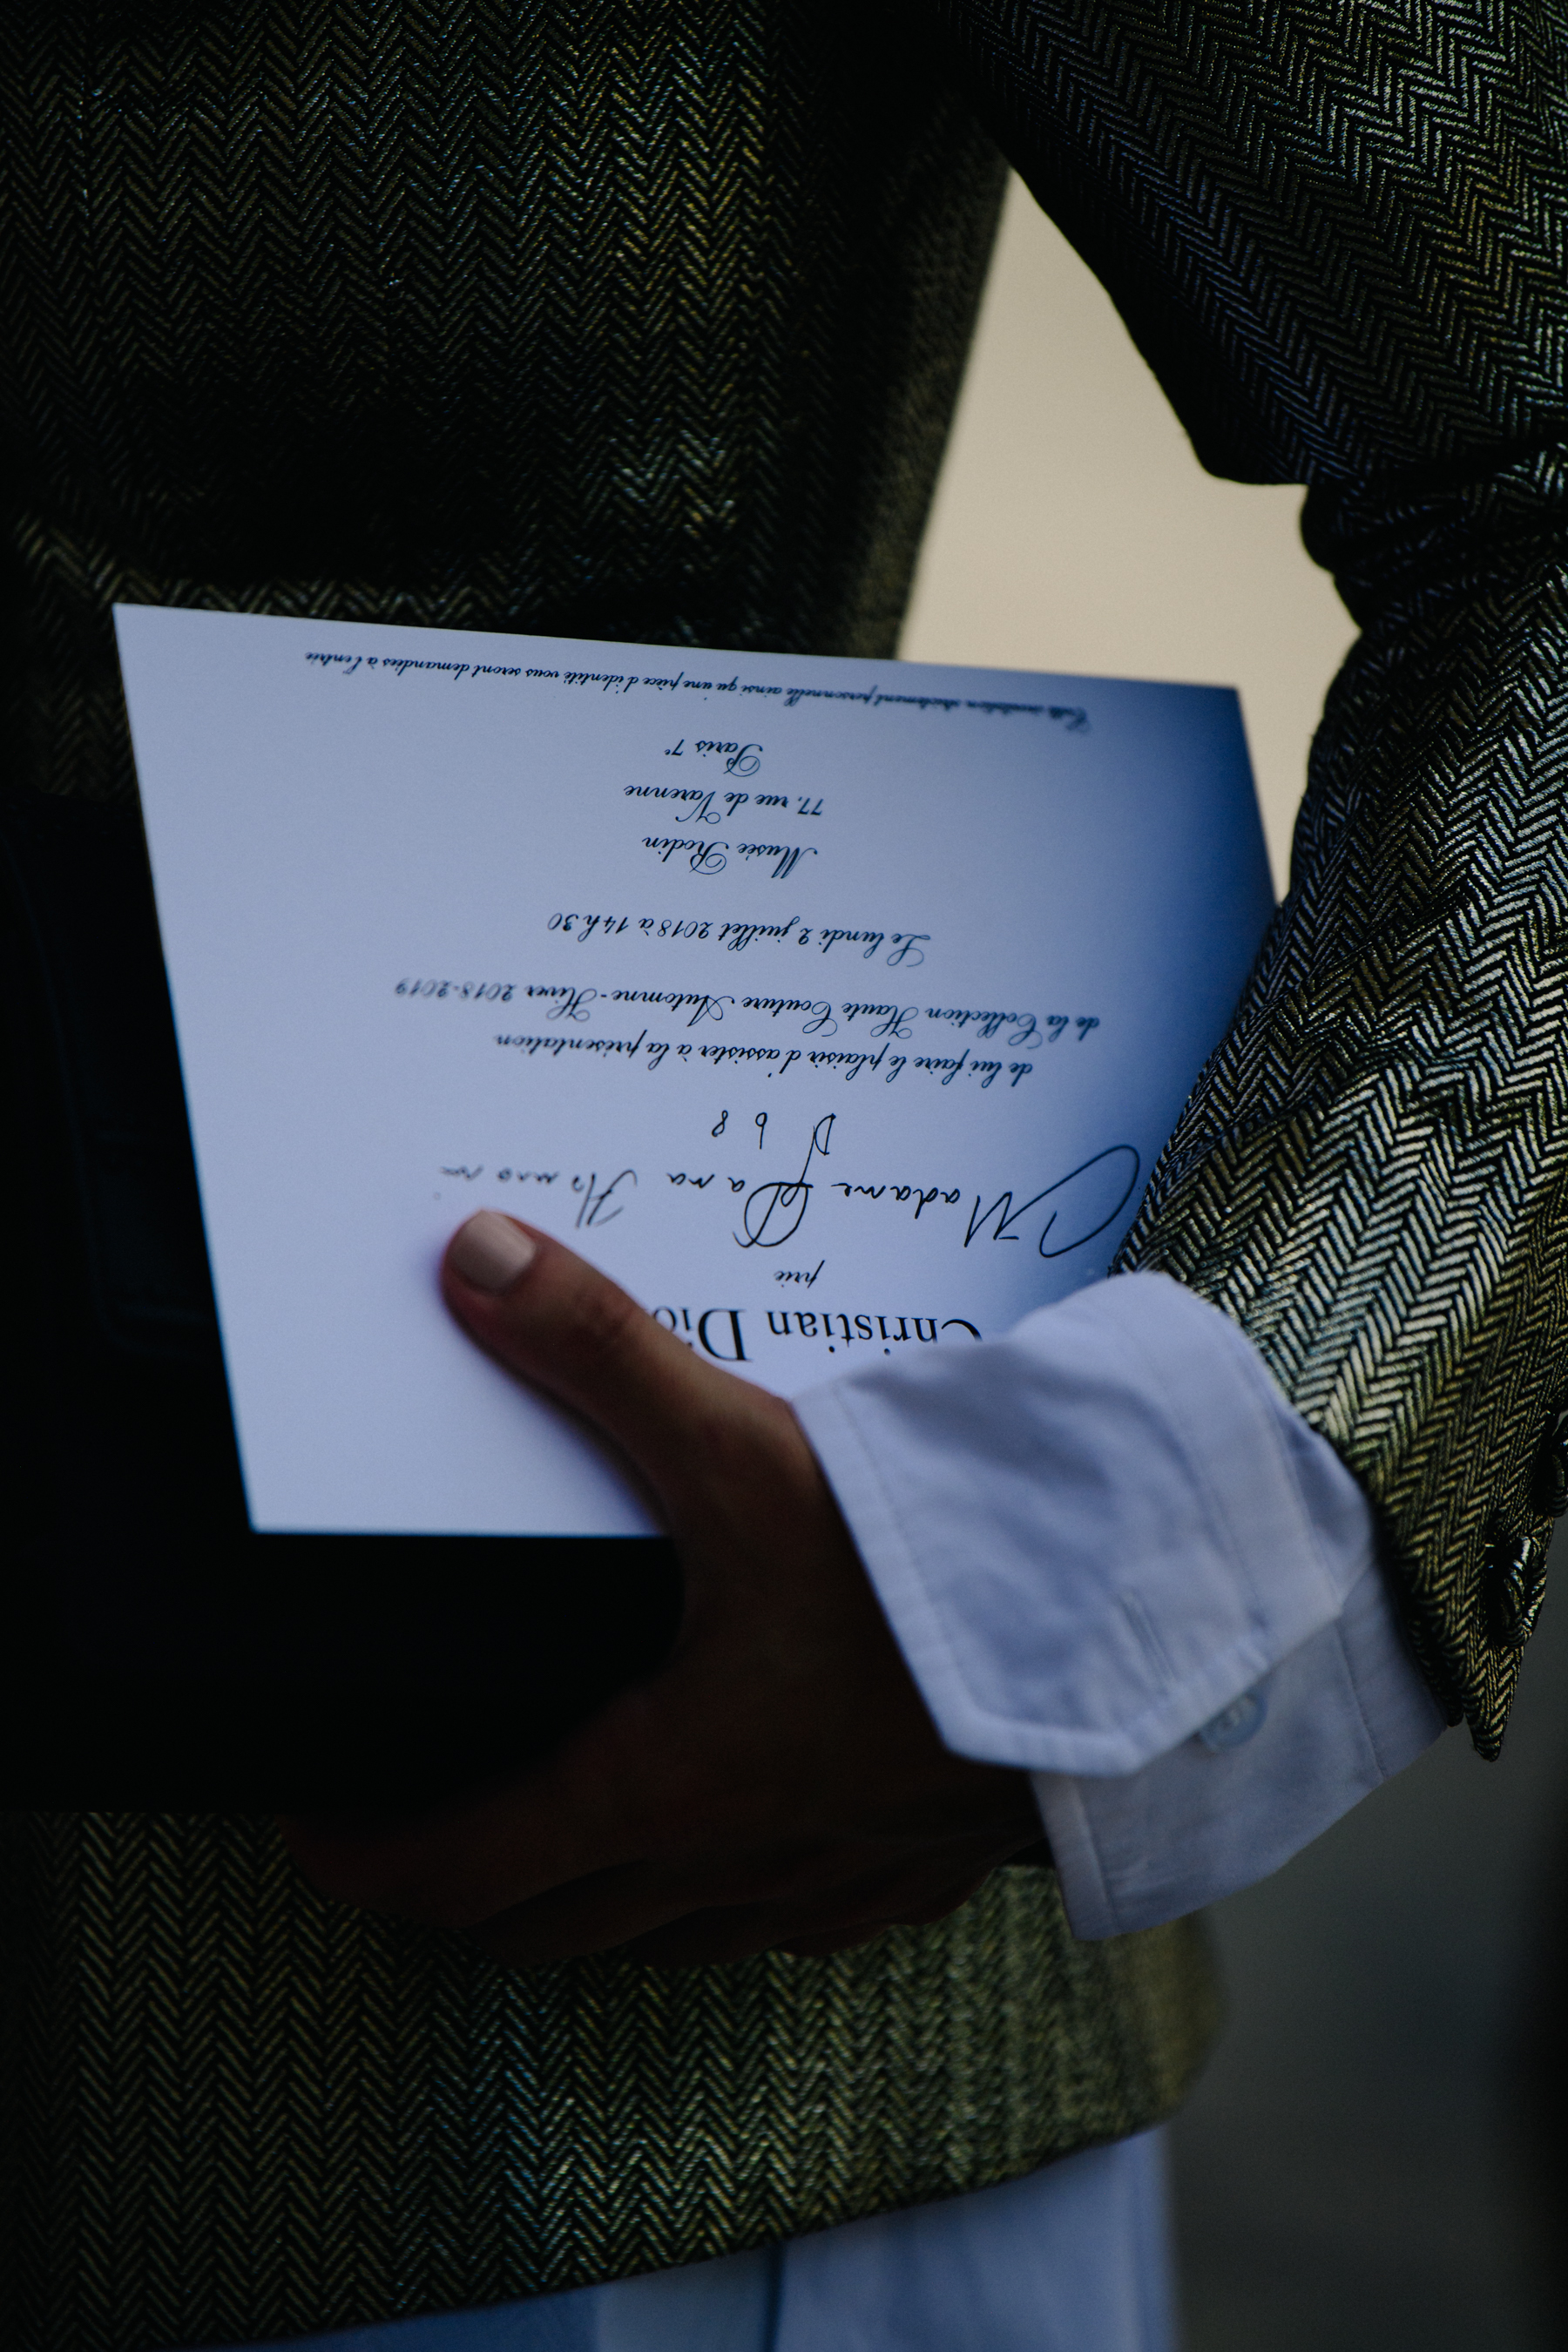 Christian Dio
prie
Madame
D 68
de lui faire le plaisir d'assister à la présentation
de la Collection Haute Couture Automne-Hiver 2018-2019
Le lundi 2 juillet 2018 à 14h30
Musée Rodin
77, rue de Varenne
Paris 7e
Cette invitation strictement personnelle ainsi qu'une pièce d'identité vous seront demandées à l'entrée